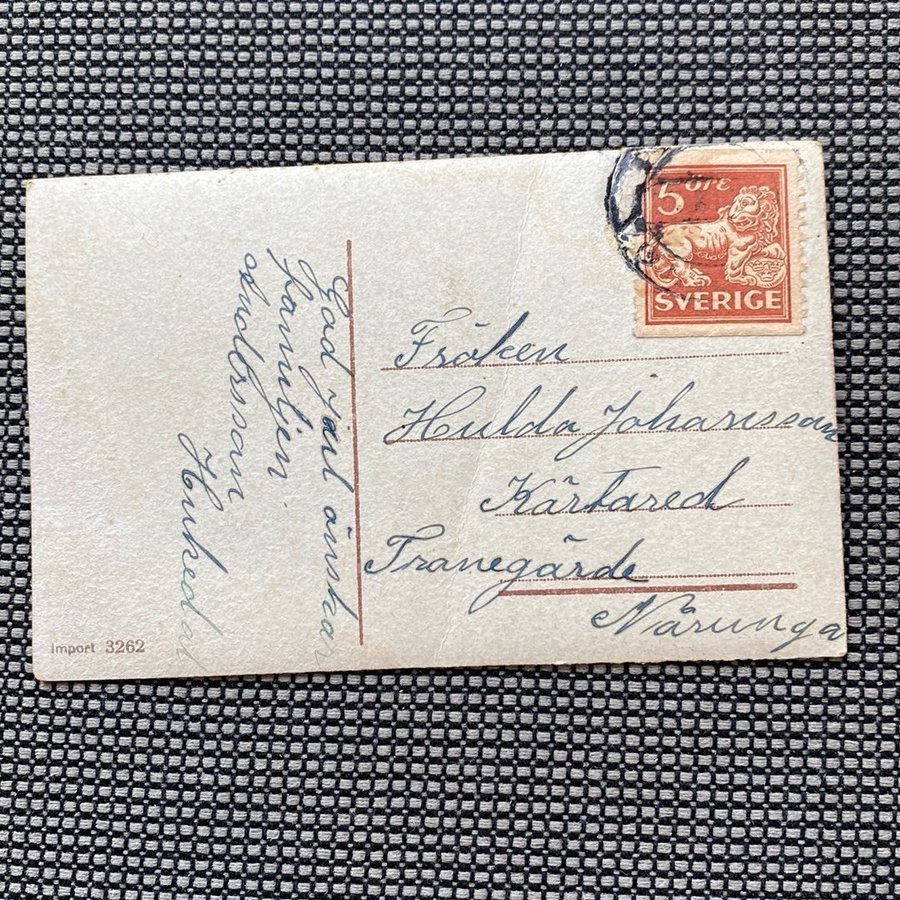 5 öre
SVERIGE
God Jul önskar
familjen
Andersson
Hukedal
Fröken
Hulda Johansson
Kärtared
Tranegärde
Nårunga
Import 3262